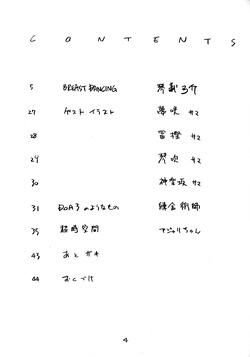 CONTENTS
5 BREAST DANCING 琴義弓介
27 ゲストイラスト 夢咲 サマ
28 冨樫 サマ
29 琴吹 サマ
30 神奈坂 サマ
31 DOA3のようなもの 錬金術師
35 超時空間 マジャリちゃん
43 あとガキ
44 おくづけ
4